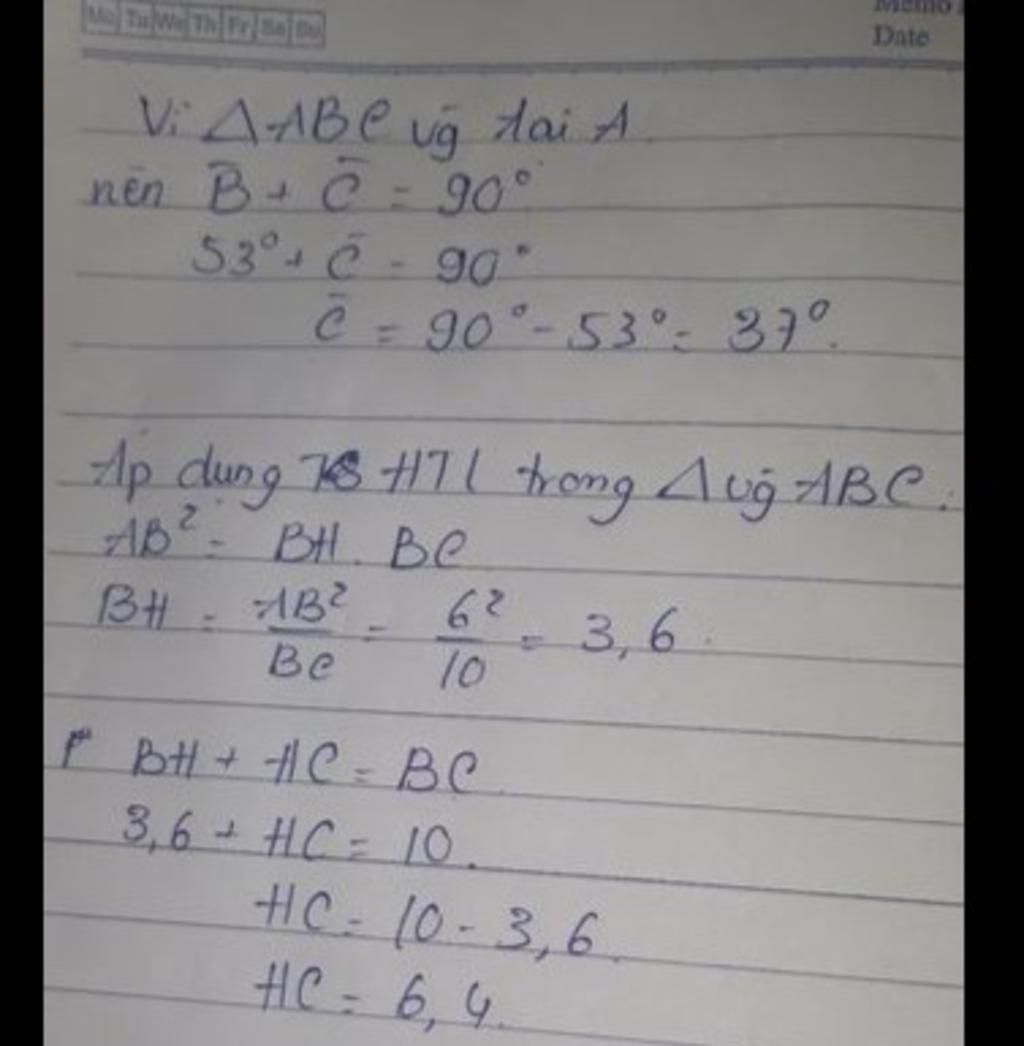 Mo Tu We Th Fr Sa Su
Memo
Date
Vì △ABC vg tai A
nên B̄ + C̄ = 90°
53° + C̄ = 90°
C̄ = 90° - 53° = 37°.
Áp dung HTL trong △ vg ABC.
AB² = BH . BC
BH = AB²/BC = 6²/10 = 3,6.
BH + HC = BC
3,6 + HC = 10.
HC = 10 - 3,6.
HC = 6,4.